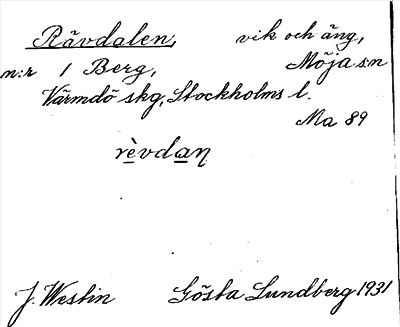 Rävdalen, vik och äng,
n:r 1 Berg, Möja sn
Värmdö skg, Stockholms l.
Ma 89
rèvdaη
J. Westin Gösta Lundberg 1931